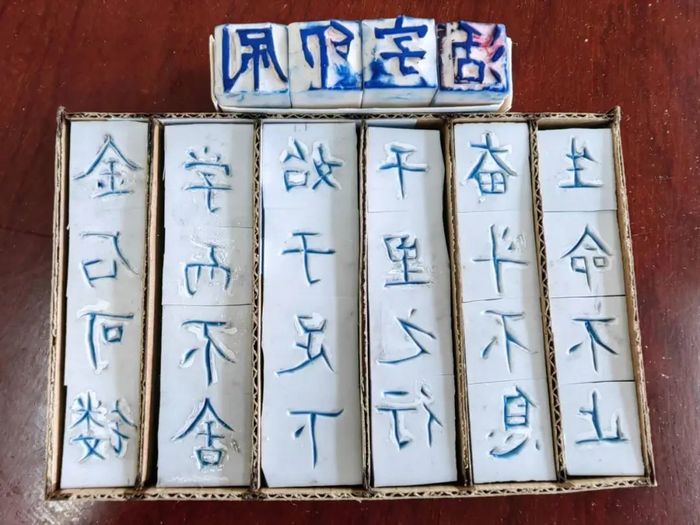 活字印刷
生命不止
奋斗不息
千里之行
始于足下
学而不舍
金石可镂